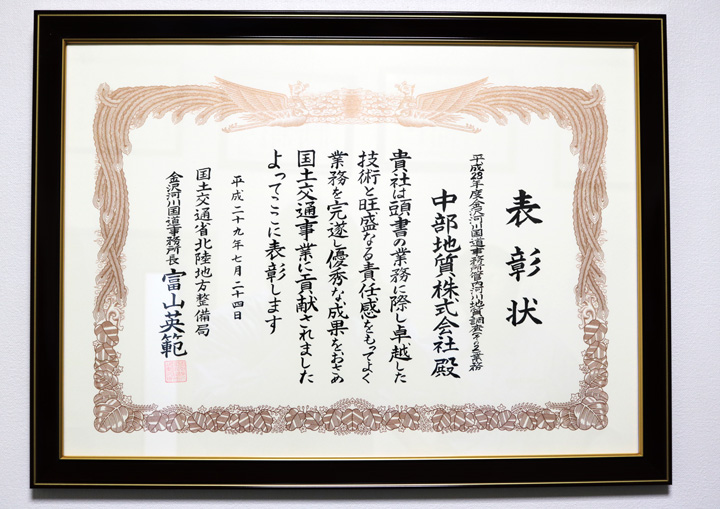 表彰状
平成28年度金沢河川国道事務所管内河川地質調査その2業務
中部地質株式会社 殿
貴社は頭書の業務に際し卓越した
技術と旺盛なる責任感をもってよく
業務を完遂し優秀な成果をおさめ
国土交通事業に貢献されました
よってここに表彰します
平成二十九年七月二十四日
国土交通省北陸地方整備局
金沢河川国道事務所長 富山英範